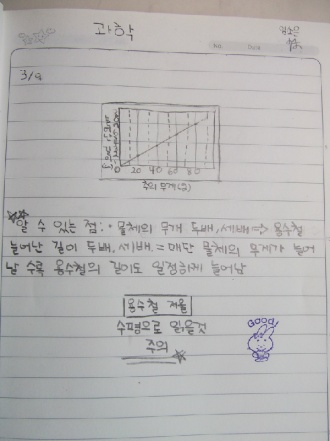 과학
No. Date
3/9
0 20 40 60 80
추의 무게(g)
알 수 있는 점: · 물체의 무게 두배, 세배 => 용수철
늘어난 길이 두배, 세배 = 매단 물체의 무게가 늘어
날 수록 용수철의 길이도 일정하게 늘어남
용수철 저울
수평으로 읽을것
주의
Good!